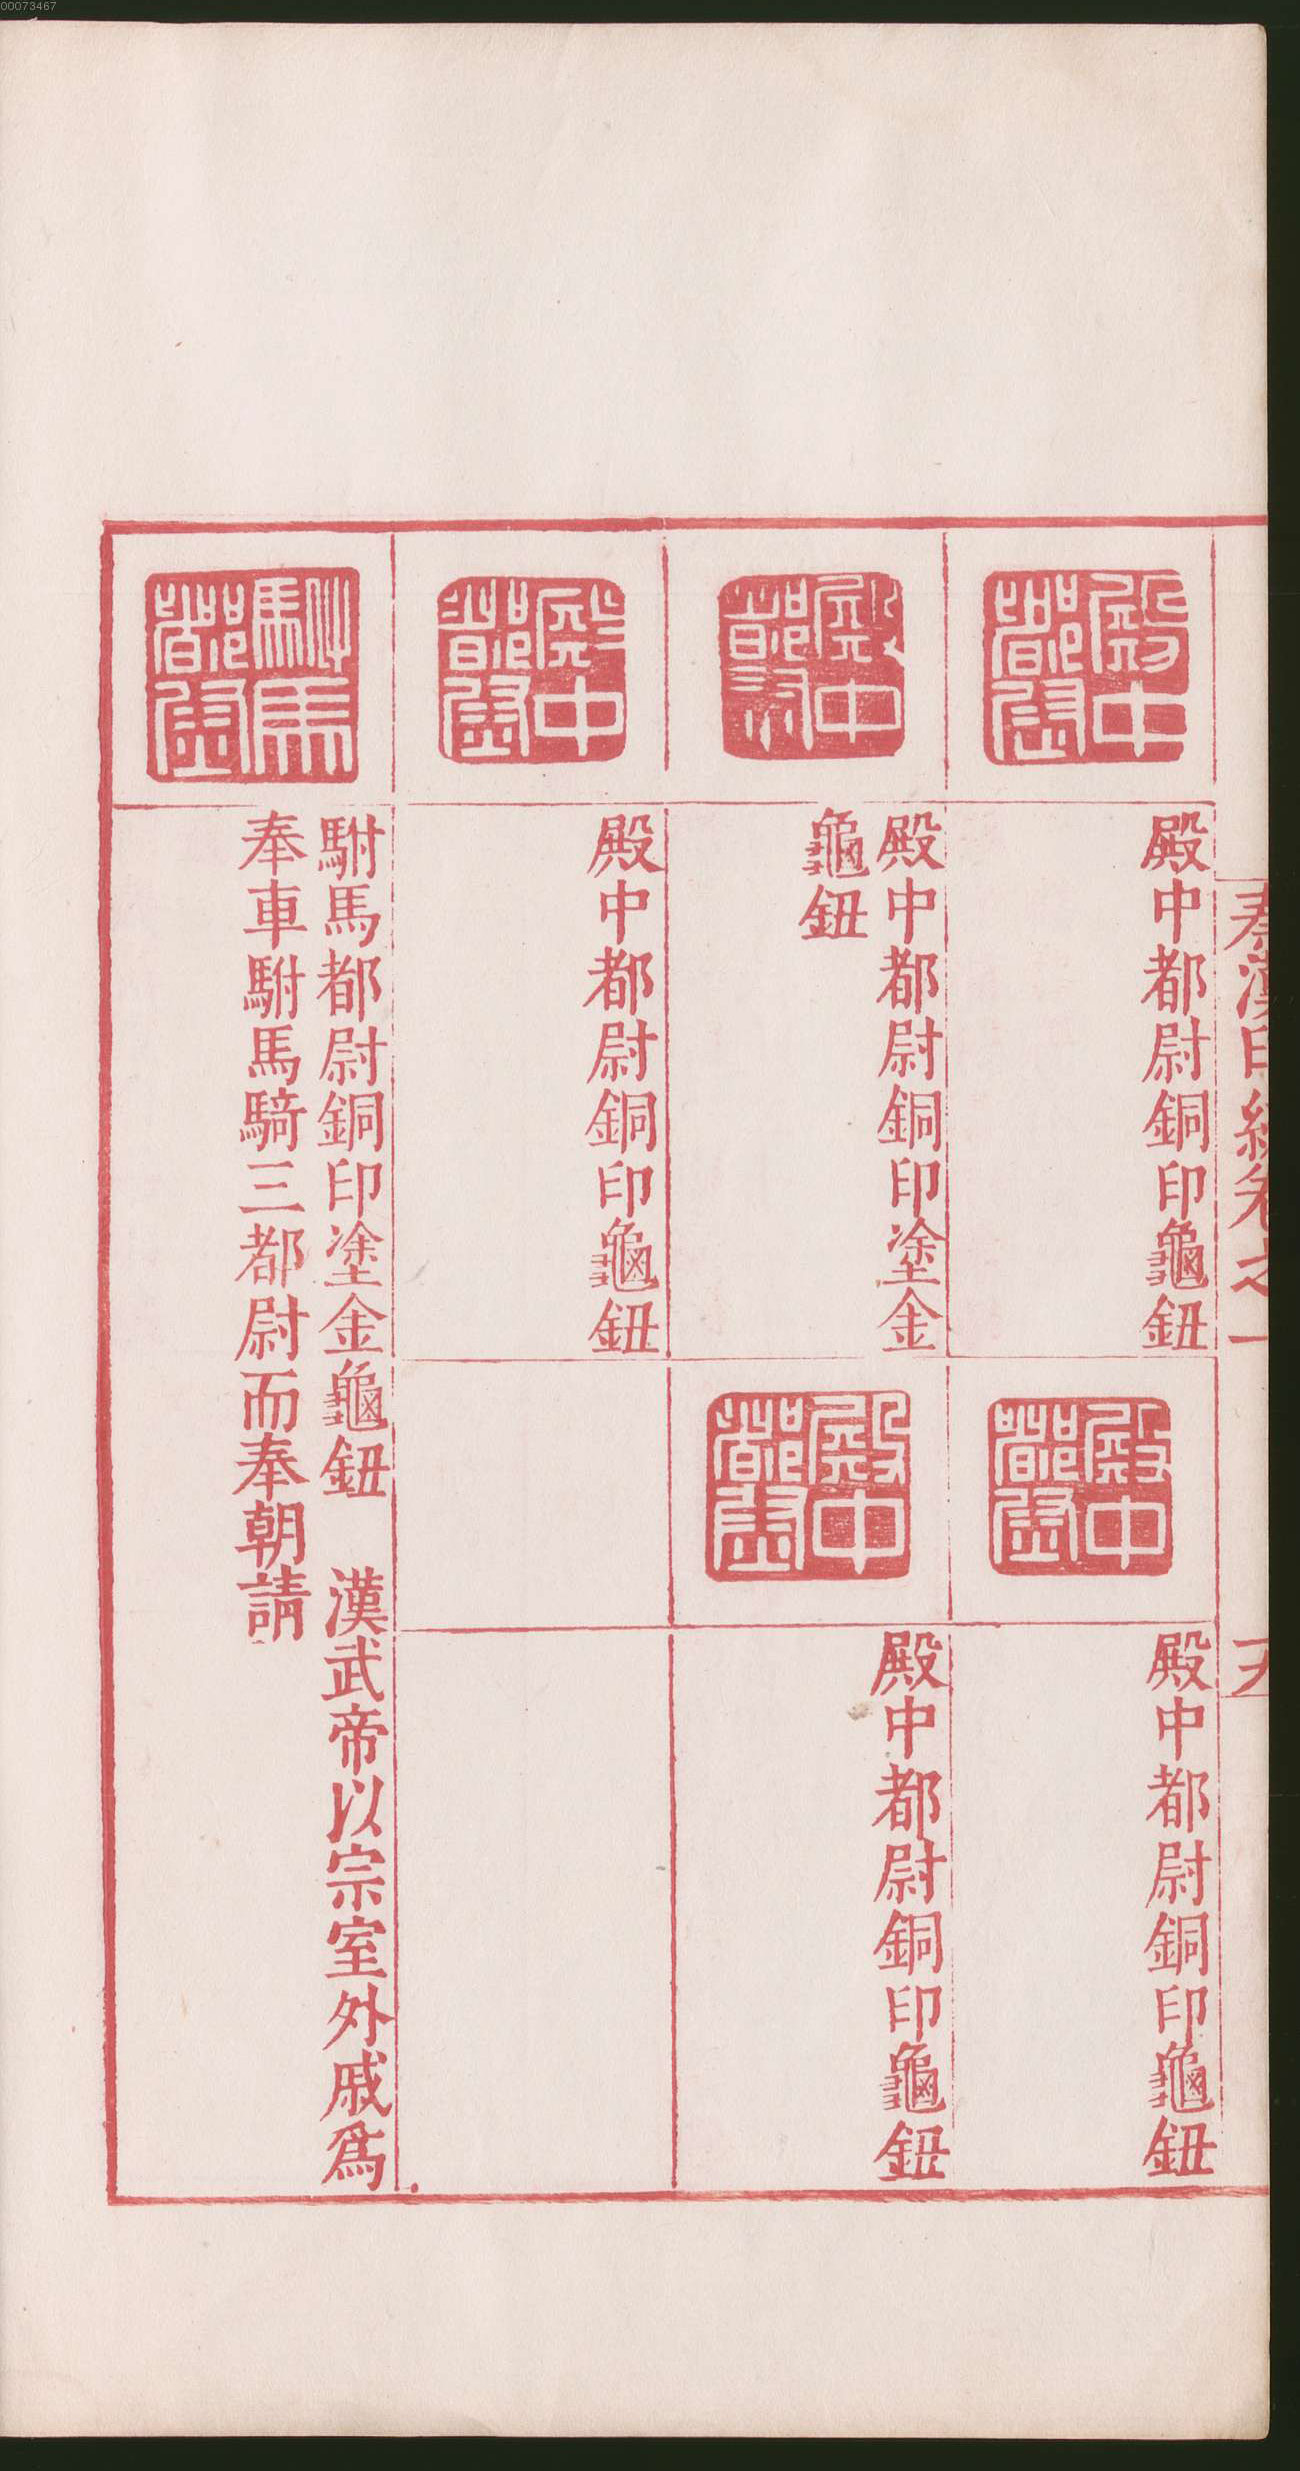 00073467
秦漢印統卷之一
五
殿中都尉
殿中都尉銅印龜鈕
殿中都尉
殿中都尉銅印龜鈕
殿中都尉
殿中都尉銅印塗金
龜鈕
殿中都尉
殿中都尉銅印龜鈕
殿中都尉
殿中都尉銅印龜鈕
駙馬都尉
駙馬都尉銅印塗金龜鈕　漢武帝以宗室外戚爲
奉車駙馬騎三都尉而奉朝請